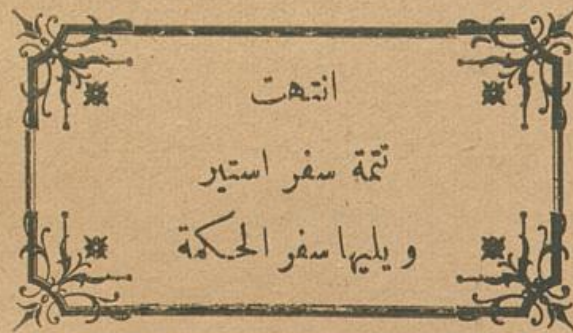 انتهت
تتمة سفر استير
ويليها سفر الحكمة